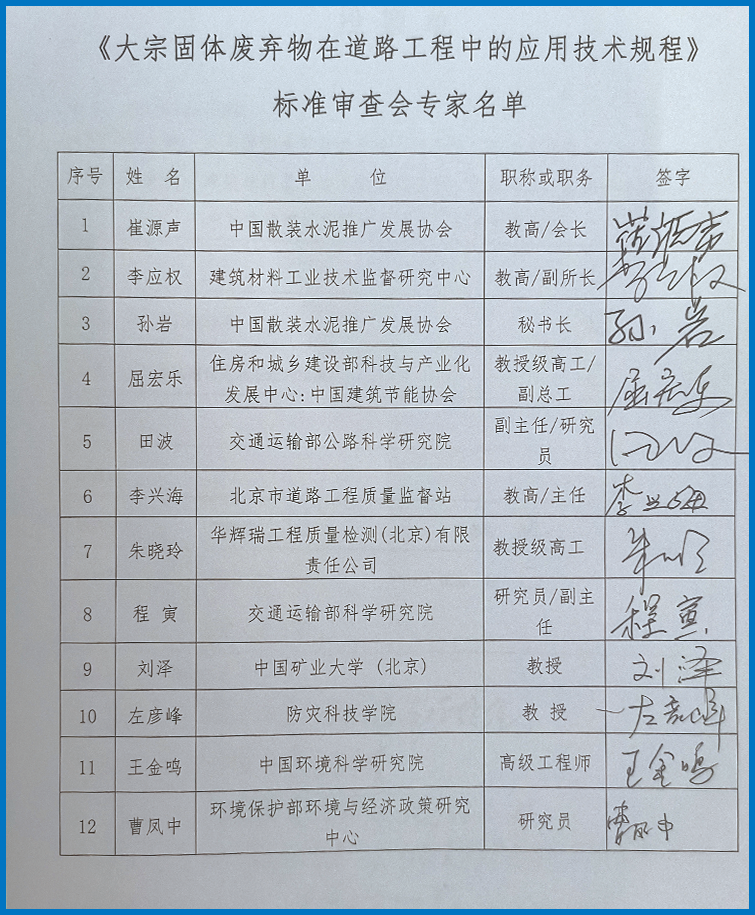 《大宗固体废弃物在道路工程中的应用技术规程》
标准审查会专家名单
序号 姓 名 单 位 职称或职务 签字
1 崔源声 中国散装水泥推广发展协会 教高/会长 崔源声
2 李应权 建筑材料工业技术监督研究中心 教高/副所长
3 孙岩 中国散装水泥推广发展协会 秘书长 孙岩
4 屈宏乐 住房和城乡建设部科技与产业化 教授级高工/ 屈宏乐
发展中心:中国建筑节能协会 副总工
5 田波 交通运输部公路科学研究院 副主任/研究
员
6 李兴海 北京市道路工程质量监督站 教高/主任 李兴海
7 朱晓玲 华辉瑞工程质量检测(北京)有限 教授级高工
责任公司
8 程 寅 交通运输部科学研究院 研究员/副主 程寅
任
9 刘泽 中国矿业大学(北京) 教授 刘泽
10 左彦峰 防灾科技学院 教 授 左彦峰
11 王金鸣 中国环境科学研究院 高级工程师 王金鸣
12 曹凤中 环境保护部环境与经济政策研究 研究员 曹凤中
中心